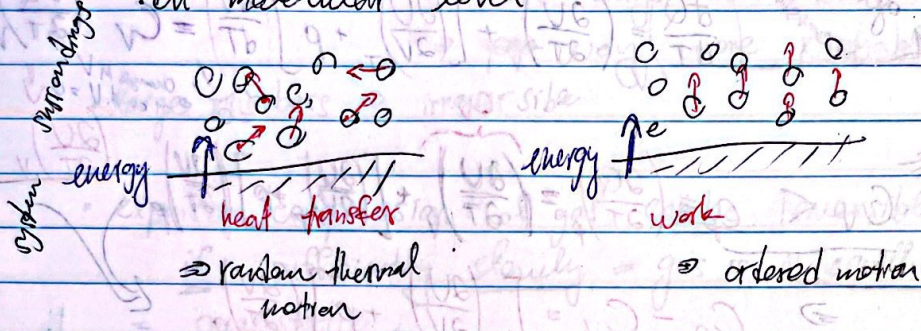 on molecular level
surroundings
system
energy
heat transfer
⇒ random thermal
motion
energy
e
work
⇒ ordered motion